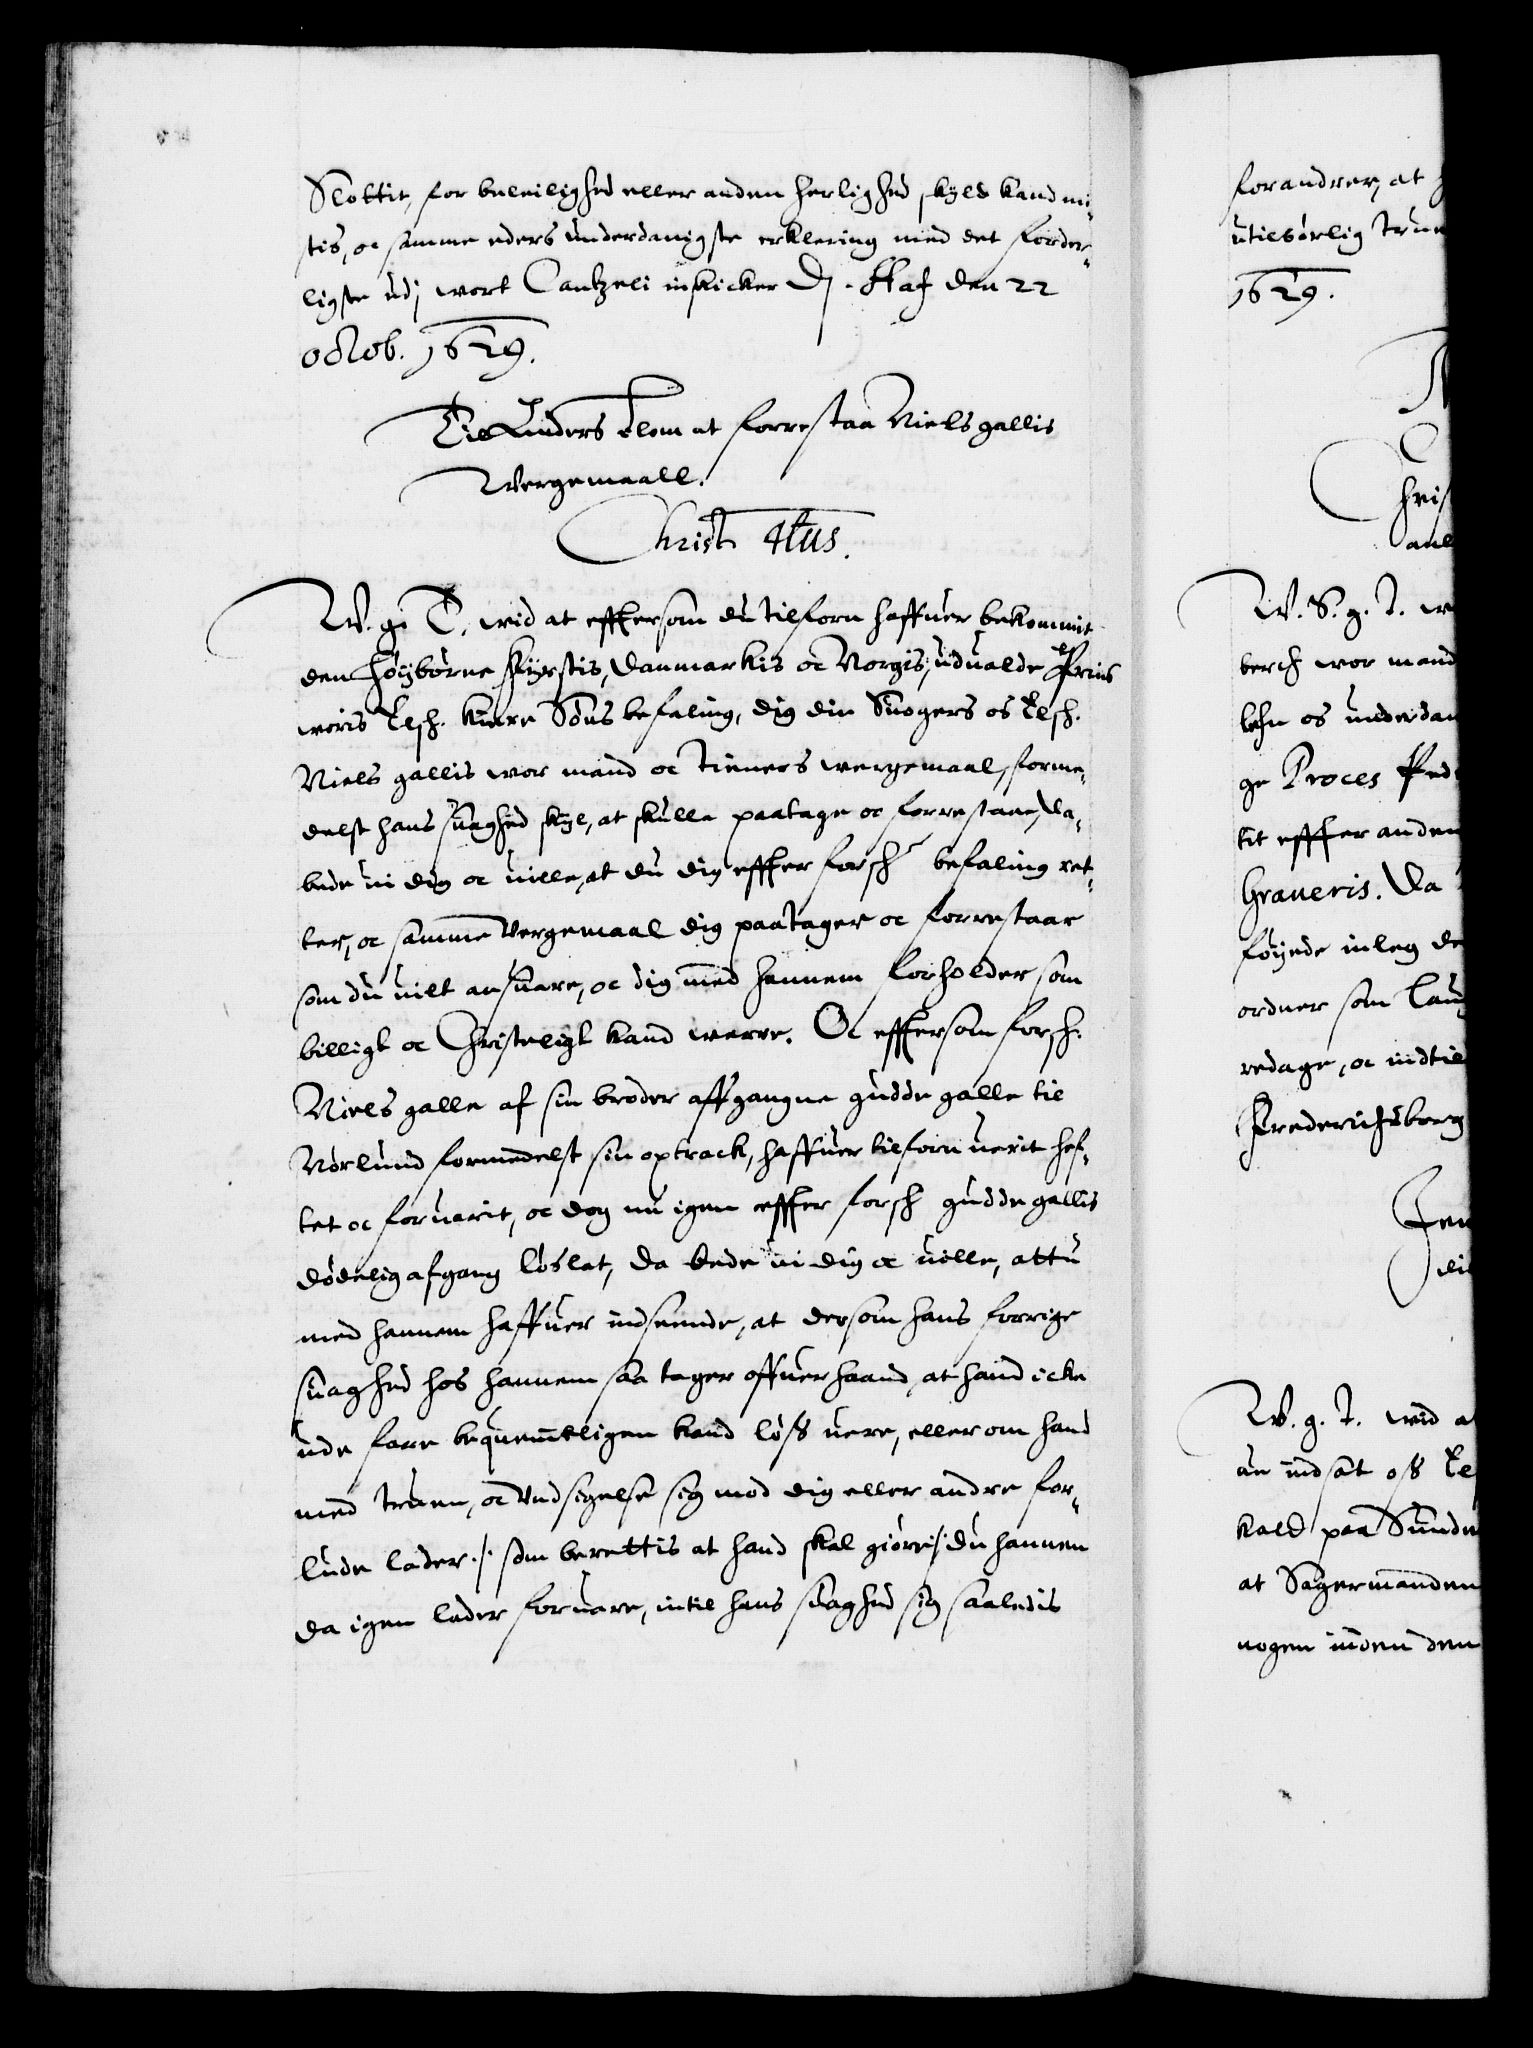 Slottit, for beleilighed eller anden herlighed skyld kand mi-
stis, oc samme eders underdanigste erklering med det forder-
ligste udj wort Cantzeli inskicker Dj. Haf den 22
octob. 1629.
Til Anders Blom at forrestaa Niels gallis
Wergemaall.
Christ 4tus.
W. g. T. wid at effersom du tilforn haffuer bekommit
den Høybørne Fyrstis, Danmarkis oc Norgis, udualde Prins
woris Elsch. kiere Søns befaling, dig din Suogers os Elsch.
Niels gallis wor mand oc tieners wergemaal, forme-
delst hans suaghed skyl, at skulle paatage oc forrestaae, da
bede ui dig oc uille, at du dig effter forsch befaling ret-
ter, oc samme Vergemaal dig paatager oc forrestaar
som du uilt ansuare, oc dig med hannem forholder som
billigt oc Christeligt kand werre. Oc effersom forsch.
Niels galle af sin broder affgangne gudde galle til
Nørlund formedelst sin optrack, haffuer tilforn uerit hef-
tet oc foruarit, oc dog nu igen effter forsch gudde gallis
dødelig afgang løslat, da bede ui dig oc uille, attu
med hannem haffuer indseende, at dersom hans forrige
suaghed hos hannem saa tager offuerhaand, at hand icke
uden fare bequemmeligen kand løss uere, eller om hand
med truen, oc Undsigelse sig mod dig eller andre for-
lude lader ./. som berettis at hand skal giøre ./. du hannem
da igen lader foruare, intil hans suaghed sig saaledis
forandrer, at
utilbørlig true
1629.
Chris
W. S. g. T. w
berch wor mand
behn os underdan
ge Proces
tit effter anden
Graueris. Da
føyede inleg de
ordner som laug
redage, oc indtil
Frederichsborg
Jen
W. g. T. wid a
an indsat oss El
kald paa Sunde
at Sagermanden
nogen inden den